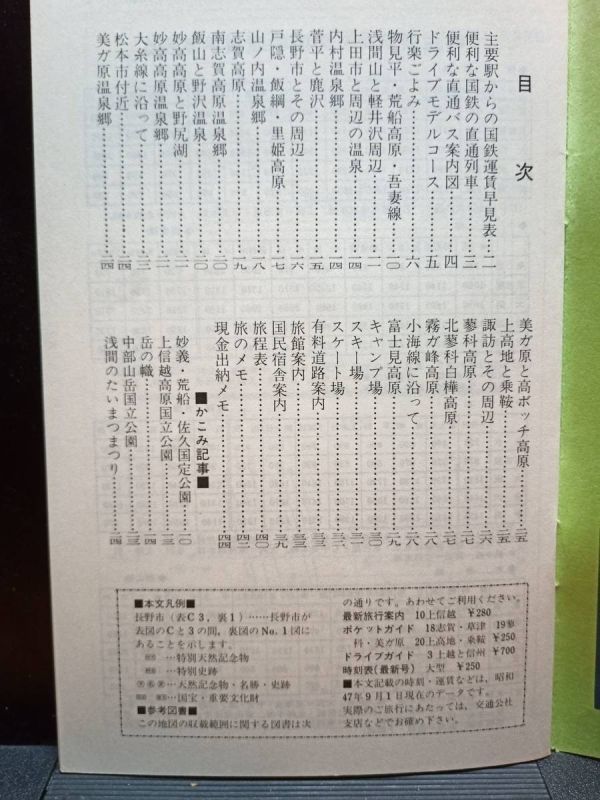 目次
主要駅からの国鉄運賃早見表…二
便利な国鉄の直通列車…三
便利な直通バス案内図…四
ドライブモデルコース…五
行楽ごよみ…六
物見平・荒船高原・吾妻線…一〇
浅間山と軽井沢周辺…一一
上田市と周辺の温泉…一四
内村温泉郷…一四
菅平と鹿沢…一五
長野市とその周辺…一六
戸隠・飯綱・黒姫高原…一七
山ノ内温泉郷…一八
志賀高原…一九
南志賀高原温泉郷…二〇
飯山と野沢温泉…二〇
妙高高原と野尻湖…二一
妙高高原温泉郷…二一
大糸線に沿って…二三
松本市付近…二四
美ガ原温泉郷…二四
美ガ原と高ボッチ高原…二五
上高地と乗鞍…二五
諏訪とその周辺…二六
蓼科高原…二七
北蓼科白樺高原…二七
霧ガ峰高原…二八
小海線に沿って…二八
富士見高原…二九
キャンプ場…三〇
スキー場…三一
スケート場…三二
有料道路案内…三三
旅館案内…三三
国民宿舎案内…三九
旅程表…四〇
旅のメモ…四四
現金出納メモ…四四
■かこみ記事■
妙義・荒船・佐久国定公園…一〇
上信越高原国立公園…一三
岳の幟…一四
中部山岳国立公園…二三
浅間のたいまつまつり…一四
■本文凡例■
長野市(表C3,裏1)……長野市が
表図のCと3の間,裏図のNo.1図に
あることを示します。
…特別天然記念物
…特別史跡
…天然記念物・名勝・史跡
…国宝・重要文化財
■参考図書■
この地図の収載範囲に関する図書は次
の通りです。あわせてご利用ください。
最新旅行案内 10上信越 ¥280
ポケットガイド 18志賀・草津 19蓼
科・美ガ原 20上高地・乗鞍 ¥250
ドライブガイド 3上越と信州 ¥700
時刻表(最新号) 大型 ¥250
■本文記載の時刻・運賃などは、昭和
47年9月1日現在のデータです。
実際のご旅行にあたっては、交通公社
支店などでお確め下さい。